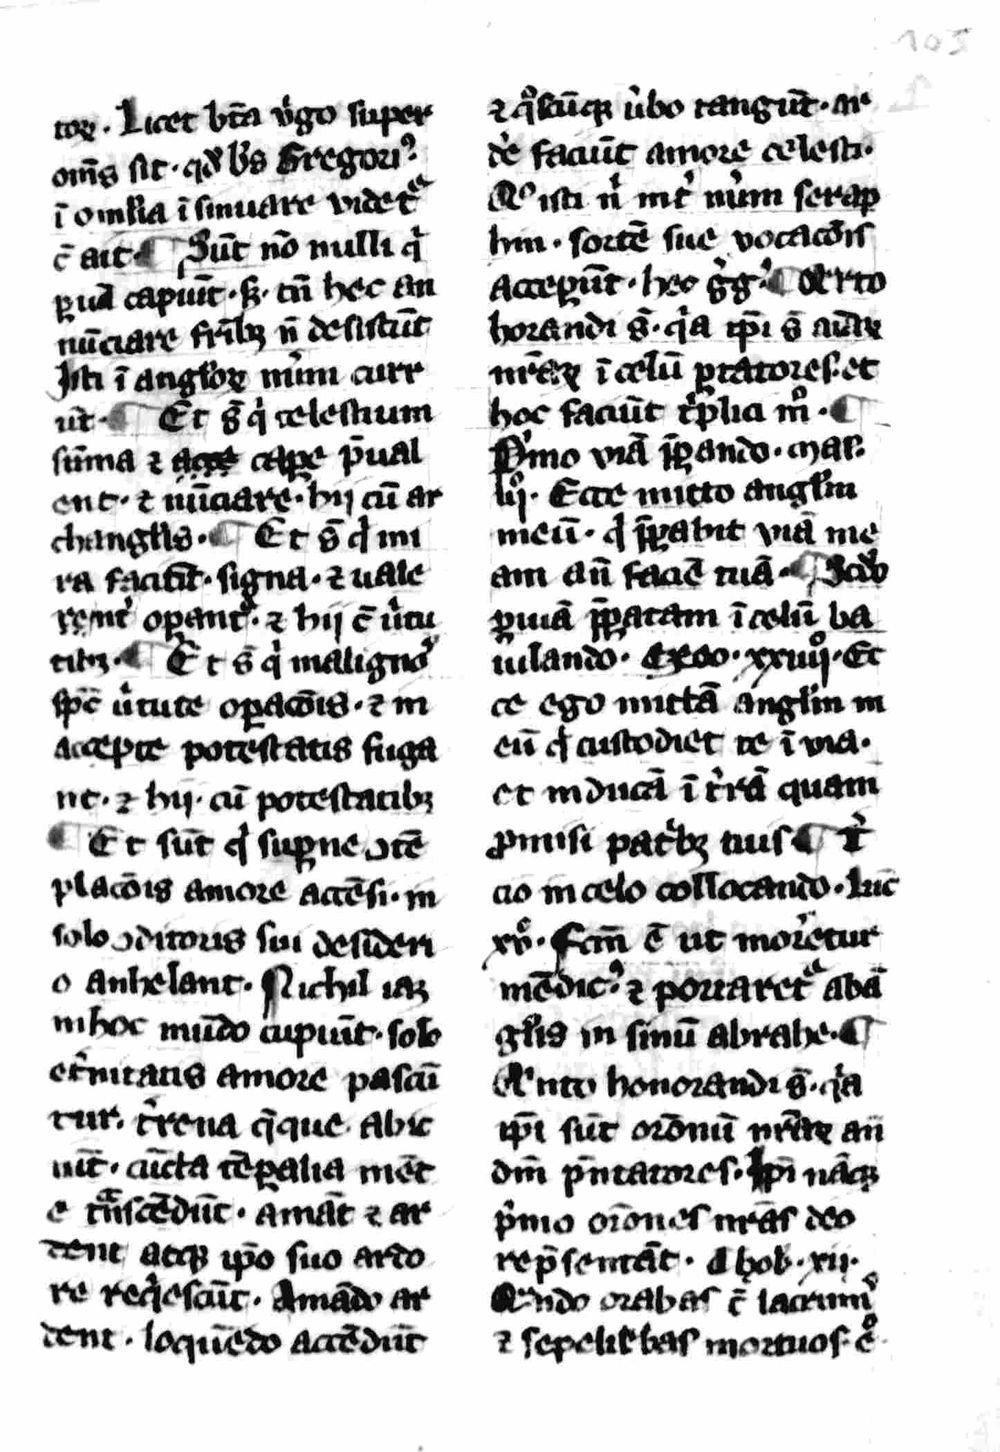 103
toꝝ. Licet bt̄a v̾go super
om̄s sit. qd̓ bt̄s Gregori⁹
ī omlia īsinuare videt᷑
c̄ ait ¶ Sūt nō nulli qͥ
ꝑua capiūt. sꝫ. tn̄ hec an
nūciare fr̄ibꝫ n̄ desistūt
Isti ī angl̓oꝝ nūm̄ curr
ūt. ¶ Et s̄ qͥ celestium
sūma ⁊ cape p̄ual
ent. ⁊ nūciare. hij cū ar
changl̓is. ¶ Et s̄ qͥ mi
ra faciūt. signa. ⁊ uale
opant᷑. ⁊ hij c̄ v̓tu
tibꝫ. ¶ Et s̄ qͥ maligno᷑
sp̄c v̓tute oꝑacōis. ⁊ in
accepte potestatis fuga
nt. ⁊ hij. cū potestatibꝫ
¶ Et sūt qͥ suꝑne ↄtē
placōis amore accēsi. in
solo ↄditoris sui desideri
o anhelant. Nichil iaꝫ
in hoc mūdo cupiūt. solo
et̓nitatis amore pascū
tur. t̓rena qͥque abic
iūt. cūcta tēꝑalia mēt
e tͣnscēdūt. amāt ⁊ ar
dent atqꝫ ip̄o suo ardo
re reqͥescūt. Amādo ar
dent. loquēdo accēdūt
⁊ qͦscūqꝫ v̓bo tangūt. ar
de̓ faciūt amore celesti.
Qͦ isti nͥ int̓ nūm̄ serap
hin. sortē sue vocacōis
acceꝑūt. hec g̓g̓. ¶ Qͣrto
honorandi s̄. qͥa ip̄i s̄ aīaꝝ
nr̄aꝝ ī celū ꝑtatores. et
hoc faciūt tͥplici mͦ. ¶
Pͥmo viā p̄ꝑando. Mal.
iijͦ. Ecce mitto angl̓m
meū. qͥ p̄ꝑabit viā me
am an̄ faciē tuā. ¶ Scd̓o
ꝑ uiā p̄ꝑatam ī celū ba
iulando. Exo. xxiijͦ. Ec
ce ego mittā angl̓m m
eū qͥ custodiet te ī via.
et inducā ī t̓rā quam
ꝓmisi pat̓bꝫ tuis ¶ T̓
cio in celo collocando. Luc̄
xvͦ. Fcm̄ ē ut moret̓ur
mēdic⁹. ⁊ portaret᷑ ab ā
gl̓is in sinū abrahe. ¶
Qͥnto honorandi s̄. qͥa
ip̄i sūt or̄onū nr̄aꝝ an̄
dm̄ p̄ntatores. Ip̄i nāqꝫ
pͥmo or̄ones nr̄as deo
rep̄sentāt. Thob. xij.
Qͣndo orabas c̄ lacrimͥs
⁊ sepeliebas mortuos. eͦ